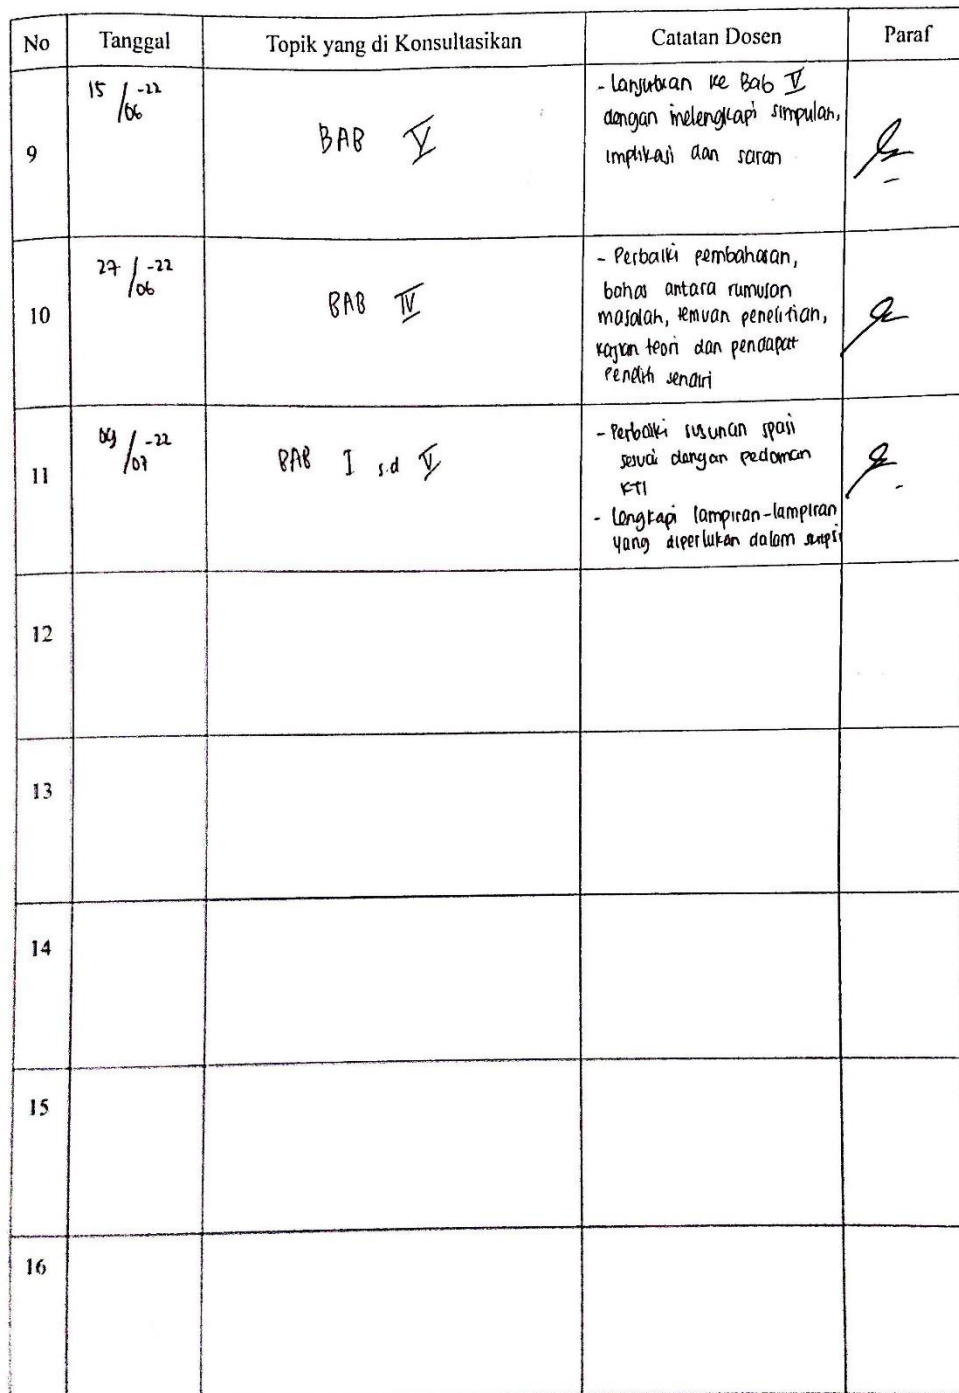 No Tanggal Topik yang di Konsultasikan Catatan Dosen Paraf
9
15/06-22
BAB V
- Lanjutkan ke Bab V
dengan melengkapi simpulan,
implikasi dan saran
10
27/06-22
BAB IV
- Perbaiki pembahasan,
bahas antara rumusan
masalah, temuan penelitian,
kajian teori dan pendapat
peneliti sendiri
11
09/07-22
BAB I s.d V
- Perbaiki susunan spasi
sesuai dengan pedoman
KTI
- Lengkapi lampiran-lampiran
yang diperlukan dalam skripsi
12
13
14
15
16